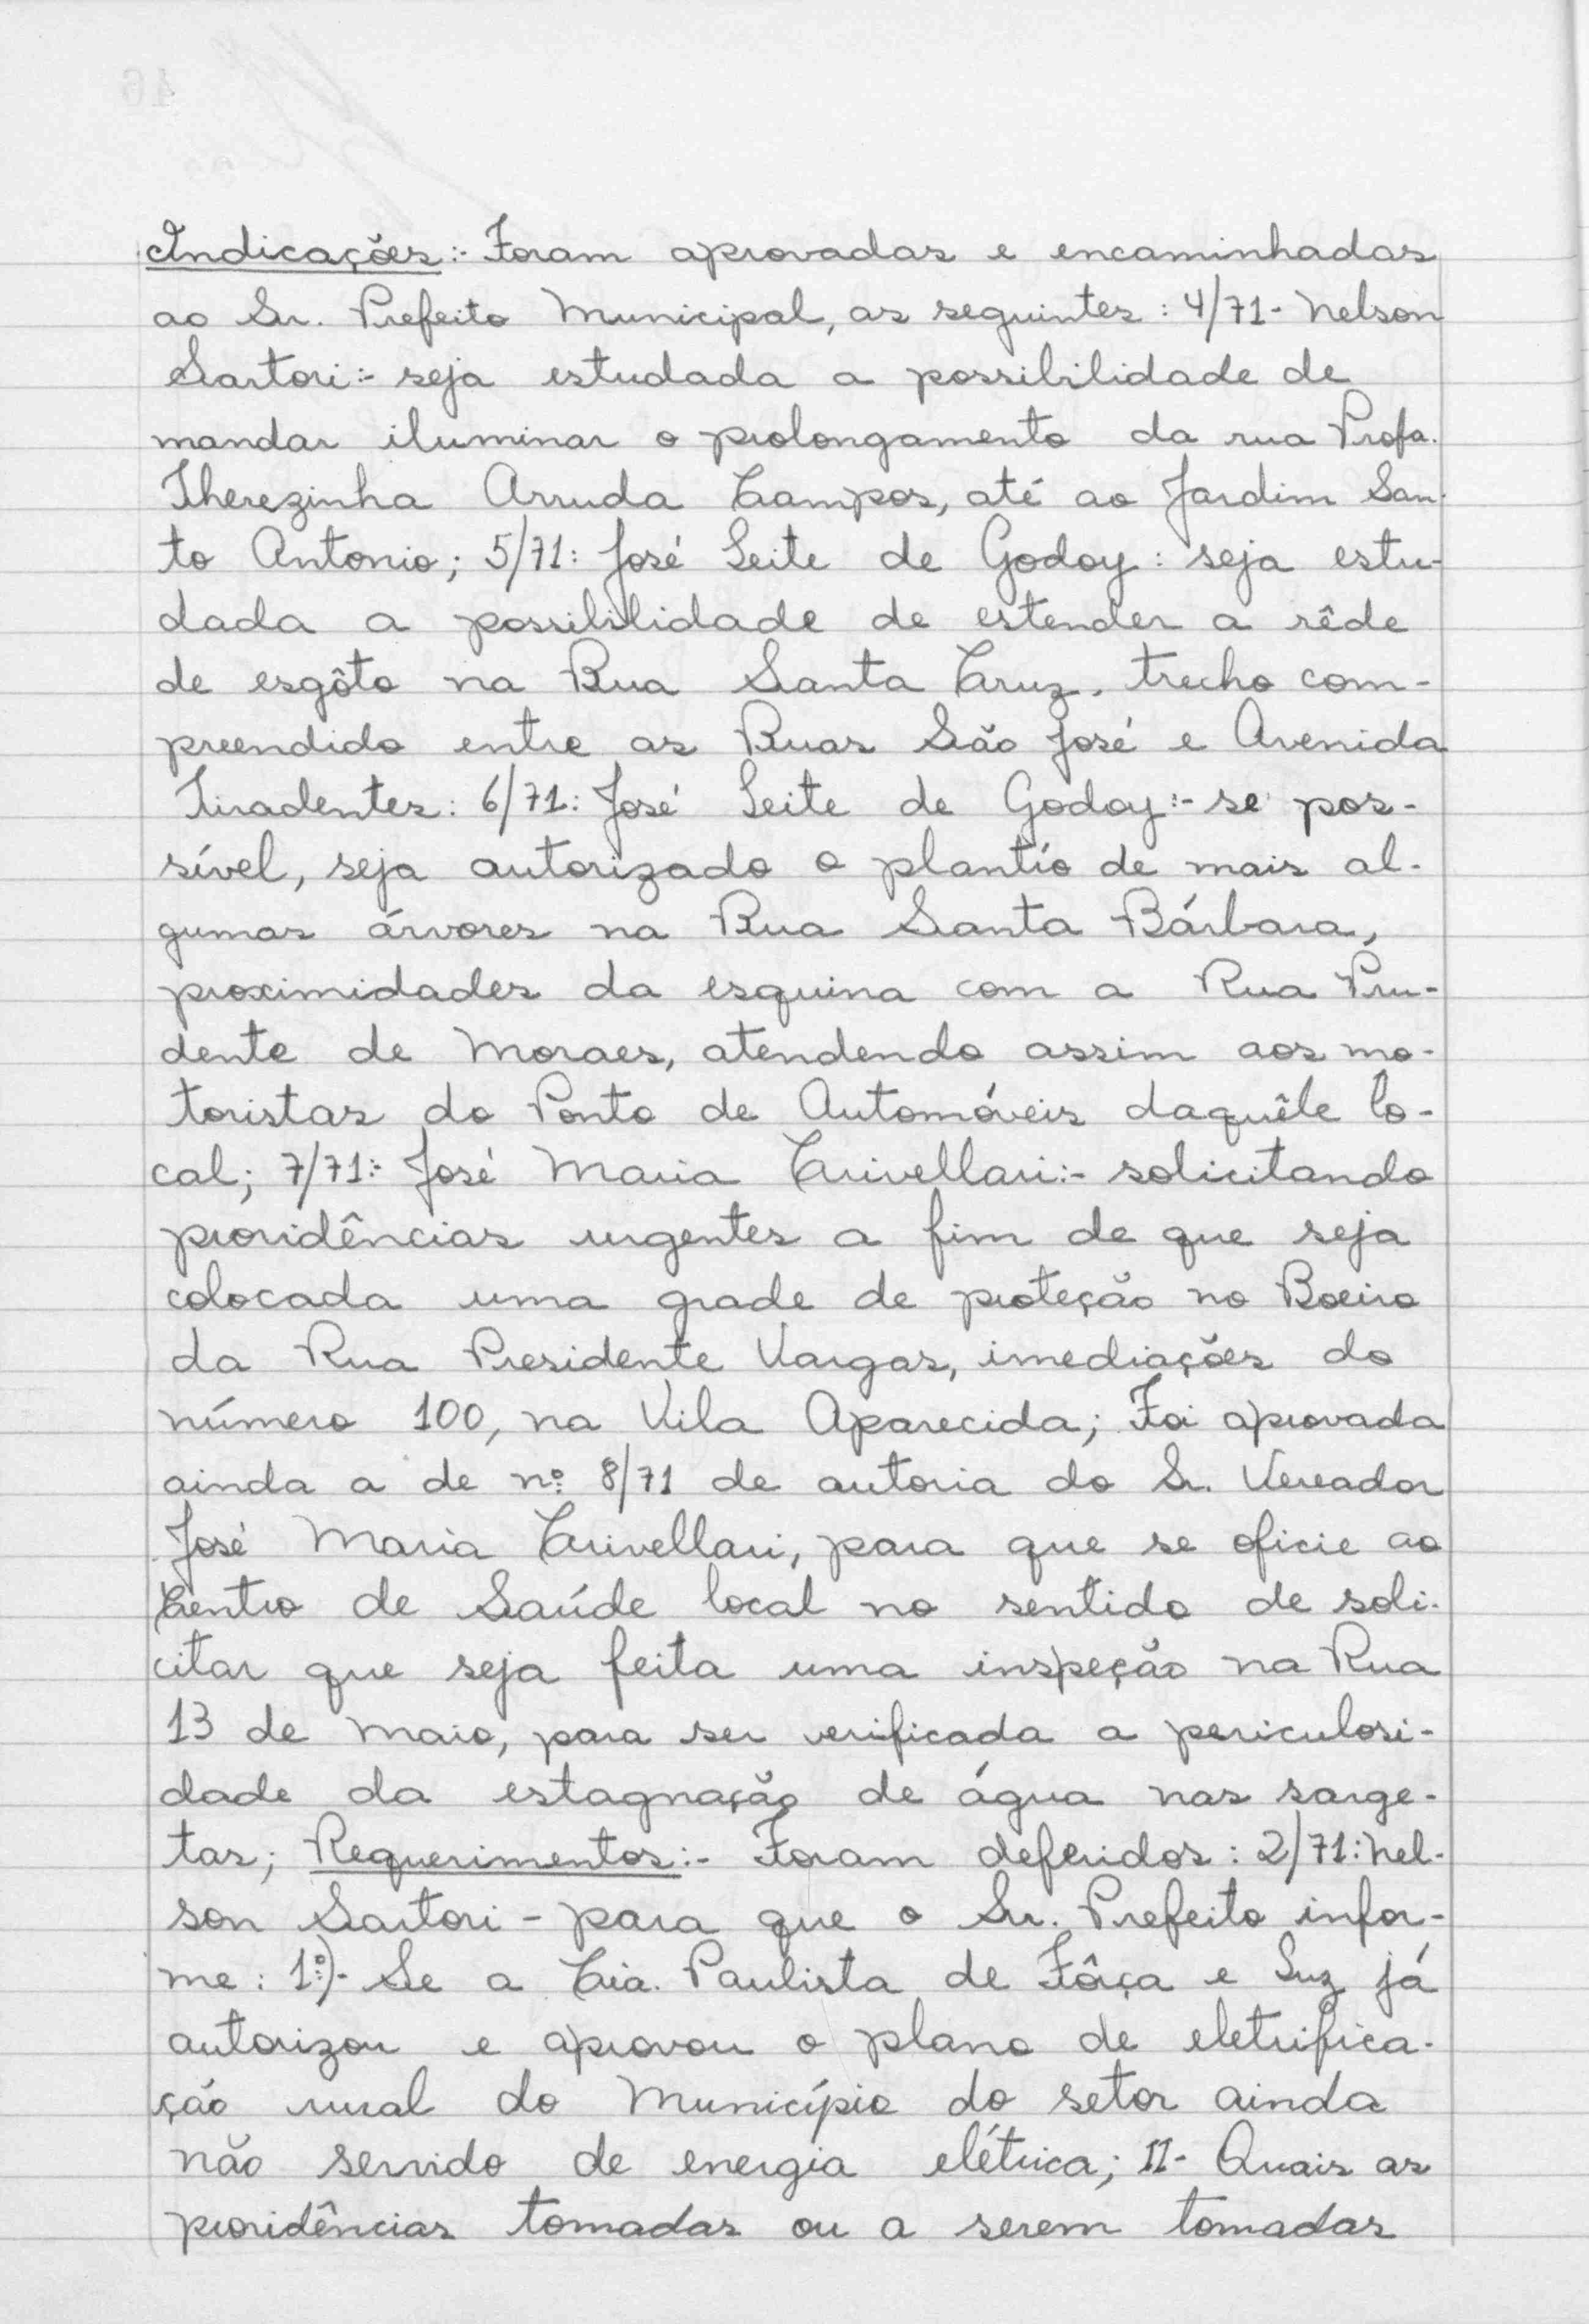 Indicações:- Foram aprovadas e encaminhadas
ao Sr. Prefeito Municipal, as seguintes: 4/71- Nelson
Sartori:- seja estudada a possibilidade de
mandar iluminar o prolongamento da rua Profa.
Therezinha Arruda Campos, até ao Jardim San-
to Antonio; 5/71: José Leite de Godoy: seja estu-
dada a possibilidade de estender a rêde
de esgôto na Rua Santa Cruz, trecho com-
preendido entre as Ruas São José e Avenida
Tiradentes: 6/71: José Leite de Godoy:- se pos-
sível, seja autorizado o plantio de mais al-
gumas árvores na Rua Santa Bárbara,
proximidades da esquina com a Rua Pru-
dente de Moraes, atendendo assim aos mo-
toristas do Ponto de Automóveis daquêle lo-
cal; 7/71:- José Maria Crivellari:- solicitando
providências urgentes a fim de que seja
colocada uma grade de proteção no Boeiro
da Rua Presidente Vargas, imediações do
número 100, na Vila Aparecida; Foi aprovada
ainda a de nº 8/71 de autoria do Sr. Vereador
José Maria Crivellari, para que se oficie ao
Centro de Saúde local no sentido de soli-
citar que seja feita uma inspeção na Rua
13 de Maio, para ser verificada a periculosi-
dade da estagnação de água nas sarge-
tas; Requerimentos:- Foram deferidos: 2/71: Nel-
son Sartori - para que o Sr. Prefeito infor-
me: 1º)- Se a Cia. Paulista de Fôrça e Luz já
autorizou e aprovou o plano de eletrifica-
ção rural do Município do setor ainda
não servido de energia elétrica; II- Quais as
providências tomadas ou a serem tomadas